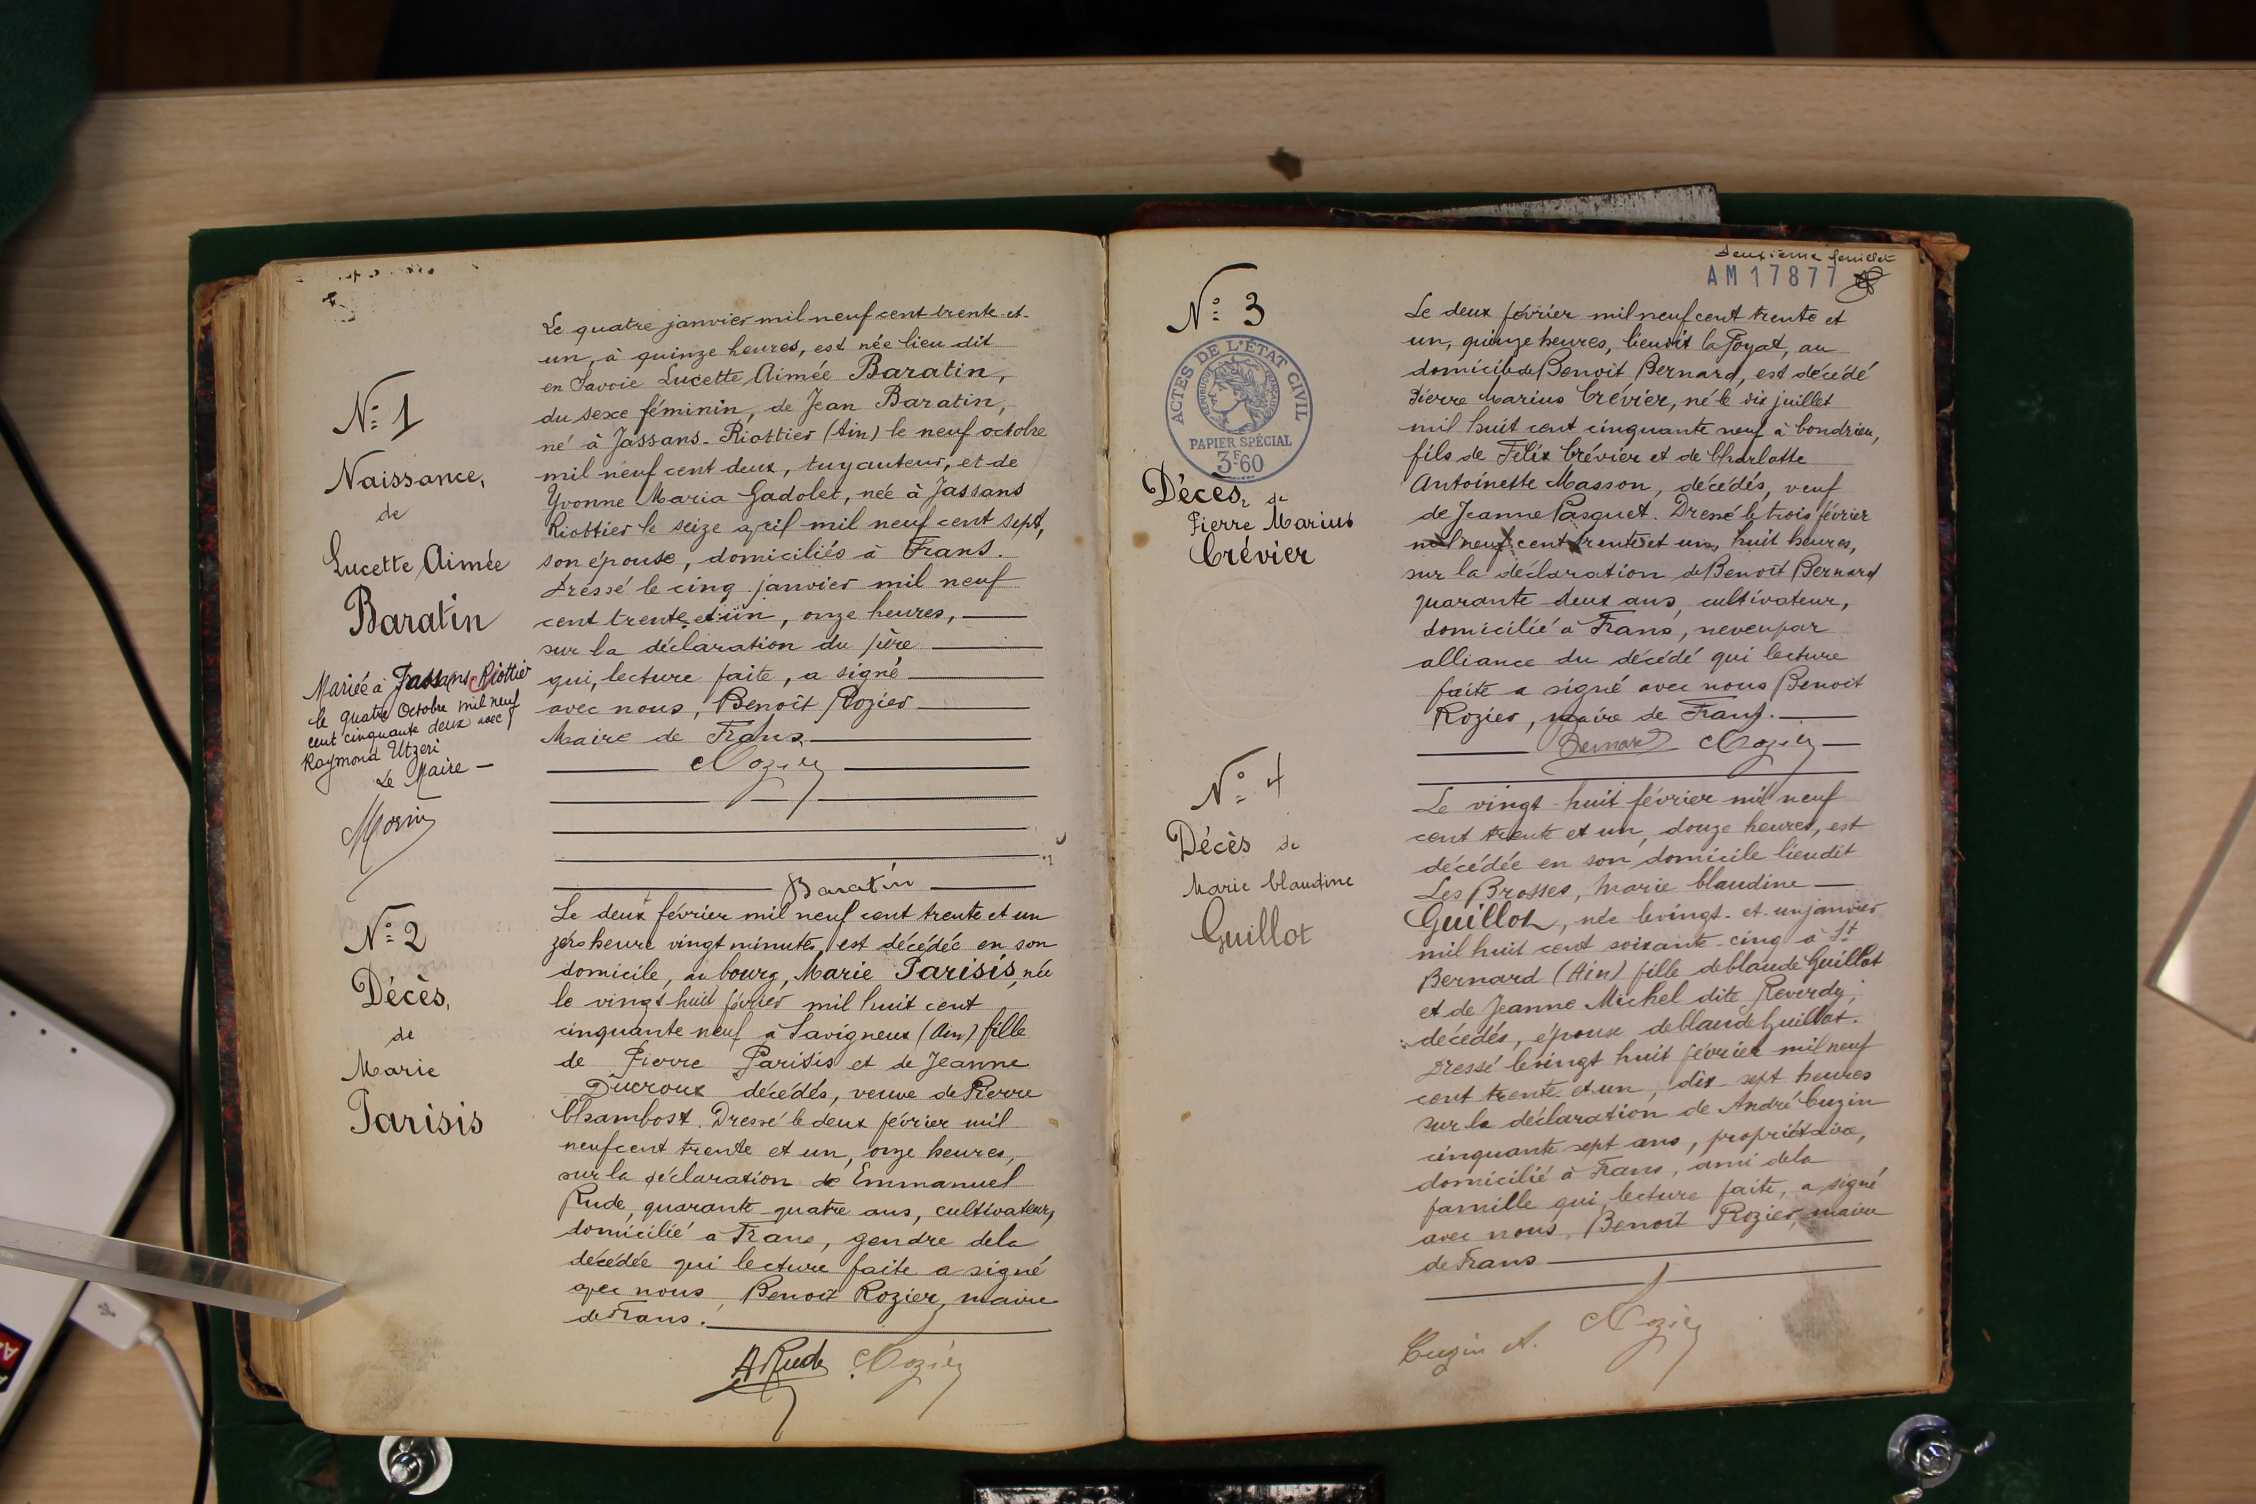 N° 1
Naissance,
de
Lucette Aimée
Baratin
Mariée à Jassans Riottier
le quatre Octobre mil neuf
cent cinquante deux avec
Raymond Utzeri
Le Maire —
Morin
Le quatre janvier mil neuf cent trente et
un, à quinze heures, est née lieu dit
en Savoie Lucette Aimée Baratin,
du sexe féminin, de Jean Baratin,
né à Jassans-Riottier (Ain) le neuf octobre
mil neuf cent deux, tuyauteur, et de
Yvonne Maria Gadolet, née à Jassans
Riottier le seize avril mil neuf cent sept,
son épouse, domiciliés à Frans.
Dressé le cinq janvier mil neuf
cent trente et un, onze heures,
sur la déclaration du père
qui, lecture faite, a signé
avec nous, Benoît Rozier
Maire de Frans
Rozier
Baratin
N° 2
Décès,
de
Marie
Parisis
Le deux février mil neuf cent trente et un
zéro heure vingt minutes, est décédée en son
domicile, au bourg, Marie Parisis, née
le vingt huit février mil huit cent
cinquante neuf à Savigneux (Ain) fille
de Pierre Parisis et de Jeanne
Ducroux décédés, veuve de Pierre
Chambost. Dressé le deux février mil
neuf cent trente et un, onze heures,
sur la déclaration de Emmanuel
Rude, quarante quatre ans, cultivateur,
domicilié à Frans, gendre de la
décédée qui lecture faite a signé
avec nous, Benoît Rozier, maire
de Frans.
A Rude Rozier
deuxième feuillet
AM 17877
N° 3
ACTES DE L'ÉTAT CIVIL
RÉPUBLIQUE FRANÇAISE
PAPIER SPÉCIAL
3F60
Décès, de
Pierre Marius
Crévier
Le deux février mil neuf cent trente et
un, quinze heures, lieudit la Poyat, au
domicile de Benoit Bernard, est décédé
Pierre Marius Crévier, né le dix juillet
mil huit cent cinquante neuf à Condrieu,
fils de Félix Crévier et de Charlotte
Antoinette Masson, décédés, veuf
de Jeanne Pasquet. Dressé le trois février
mil neuf cent trente et un, huit heures,
sur la déclaration de Benoît Bernard
quarante deux ans, cultivateur,
domicilié à Frans, neveu par
alliance du décédé qui lecture
faite a signé avec nous Benoit
Rozier, maire de Frans.
Bernard Rozier
N° 4
Décès de
Marie Claudine
Guillot
Le vingt-huit février mil neuf
cent trente et un, douze heures, est
décédée en son domicile lieudit
Les Brosses, Marie Claudine
Guillot, née le vingt-et-un janvier
mil huit cent soixante-cinq à St
Bernard (Ain) fille de Claude Guillot
et de Jeanne Michel dite Reverdy,
décédés, épouse de Claude Guillot.
Dressé le vingt huit février mil neuf
cent trente et un, dix-sept heures
sur la déclaration de André Cuzin
cinquante sept ans, propriétaire,
domicilié à Frans, ami de la
famille qui, lecture faite, a signé
avec nous, Benoit Rozier, maire
de Frans
Cuzin A. Rozier